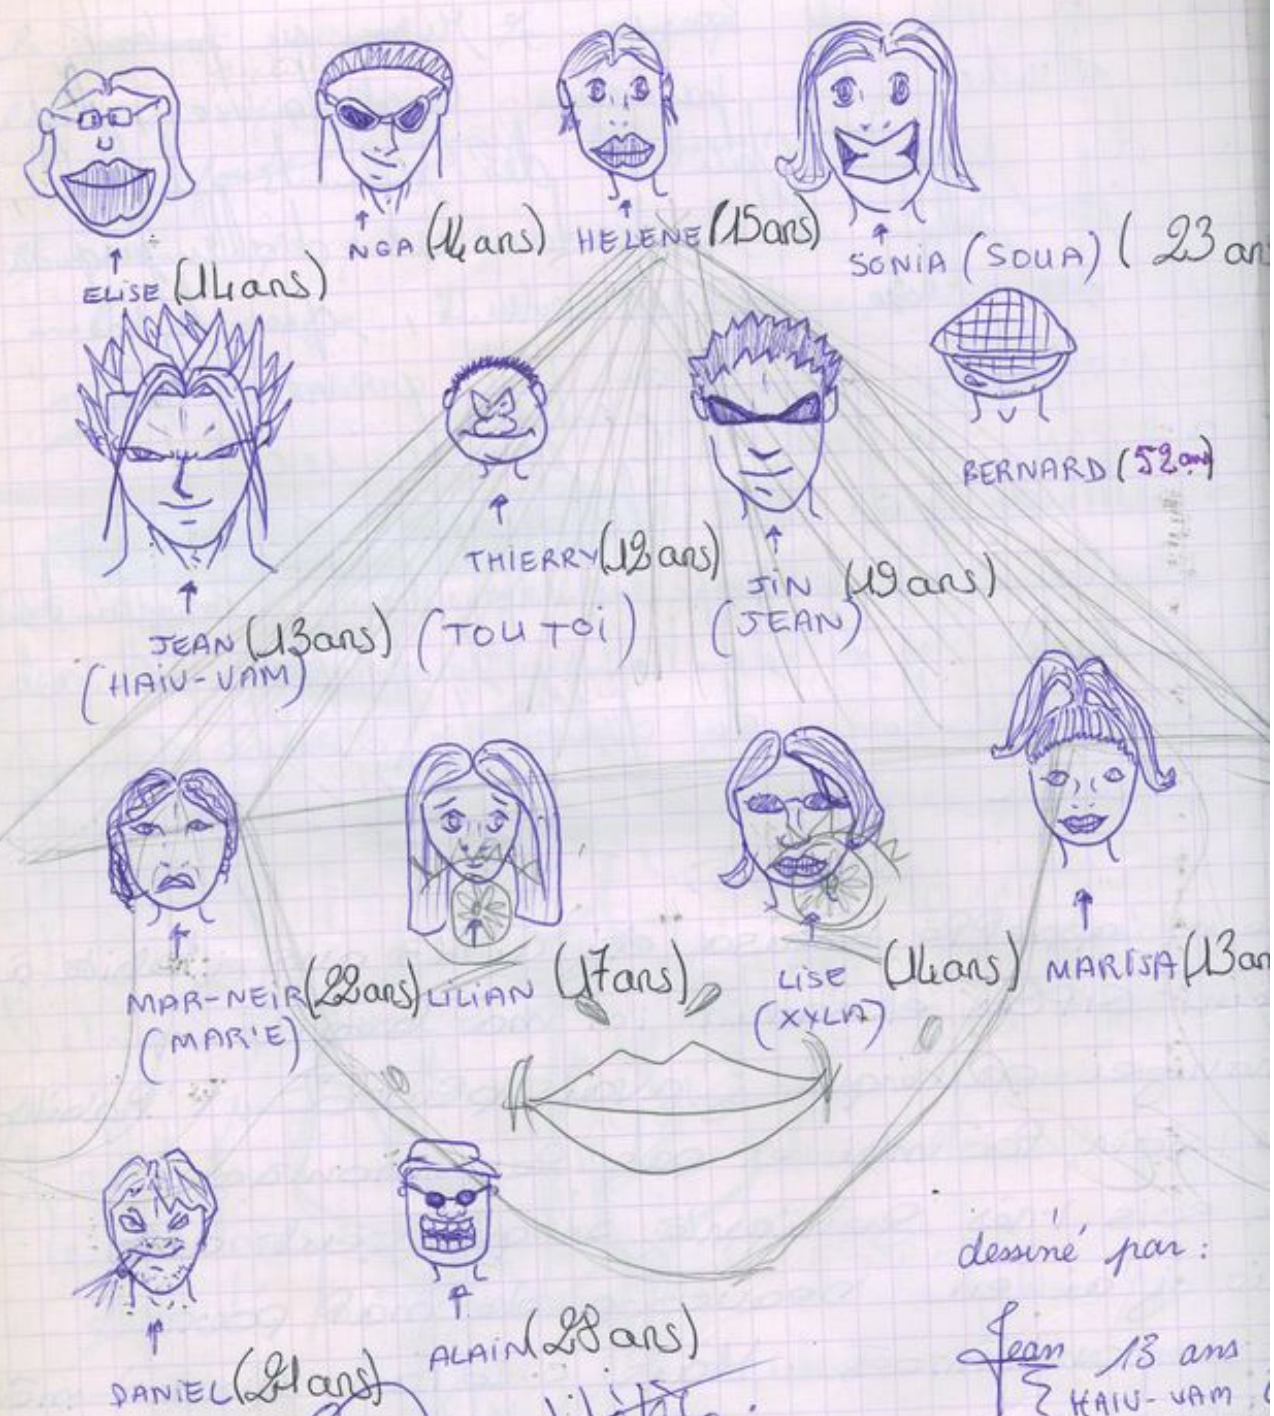 NGA (14 ans)
HELENE (15 ans)
SONIA (SOUA) (23 an
ELISE (14 ans)
BERNARD (52 ans)
THIERRY (12 ans)
(TOU TOI)
JIN (19 ans)
(JEAN)
JEAN (13 ans)
(HAIU-VAM)
MAR-NEIR (22 ans)
(MARIE)
LILIAN (17 ans)
LISE (14 ans)
(XYLA)
MARISA (13 an
DANIEL (21 ans)
ALAIN (28 ans)
dessiné par :
Jean 13 ans
HAIU-VAM